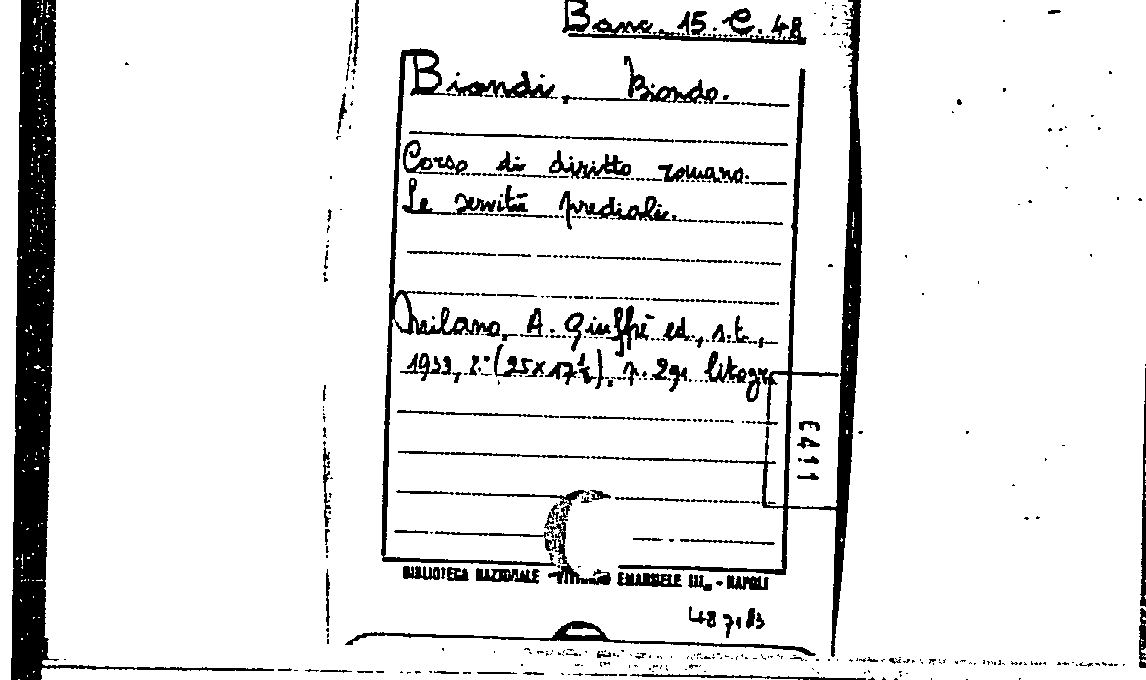 Banc. 15. C. 48
Biondi, Biondo.
Corso di diritto romano.
Le servitù prediali.
Milano, A. Giuffrè ed., s.t.,
1933, 8° (25x17½), p. 291 litogr.
E411
BIBLIOTECA NAZIONALE VITTORIO EMANUELE III - NAPOLI